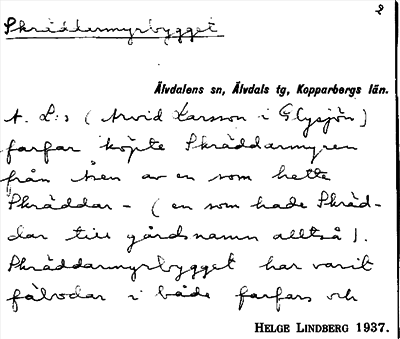 2
Skräddarmyrbygget
Älvdalens sn, Älvdals tg, Kopparbergs län.
A. L:s (Arvid Larsson i Glysjön)
farfar köpte Skräddarmyren
från Åsen av en som hette
Skräddar - (en som hade Skräd-
dar till gårdsnamn alltså).
Skräddarmyrbygget har varit
fäbodar i både farfars och
HELGE LINDBERG 1937.